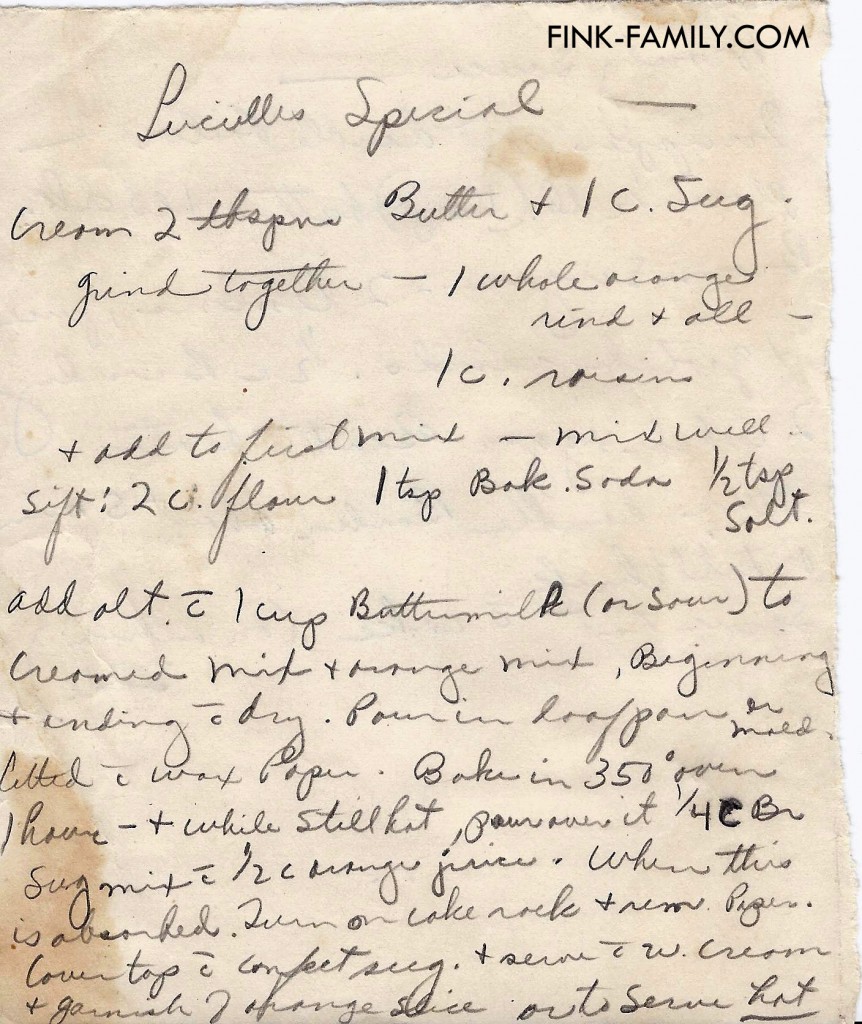 FINK-FAMILY.COM
Lucilles Special —
Cream 2 tbspns Butter + 1 C. Sug.
grind together — 1 whole orange
rind + all —
1 c. raisins
+ add to first mix — mix well.
Sift: 2 c. flour 1 tsp Bak. Soda 1/2 tsp
Salt.
add alt. c̄ 1 cup Buttermilk (or Sour) to
Creamed mix + orange mix, Beginning
+ ending c̄ dry. Pour in loaf pan or
mold.
fitted c̄ wax Paper. Bake in 350° oven
1 hour — + while still hot, pour over it 1/4 C Br
Sug mix c̄ 1/2 c orange juice. When this
is absorbed. Turn on cake rack + rem. Paper.
Cover top c̄ confect sug. + serve c̄ w. Cream
+ garnish orange slice or to serve hot